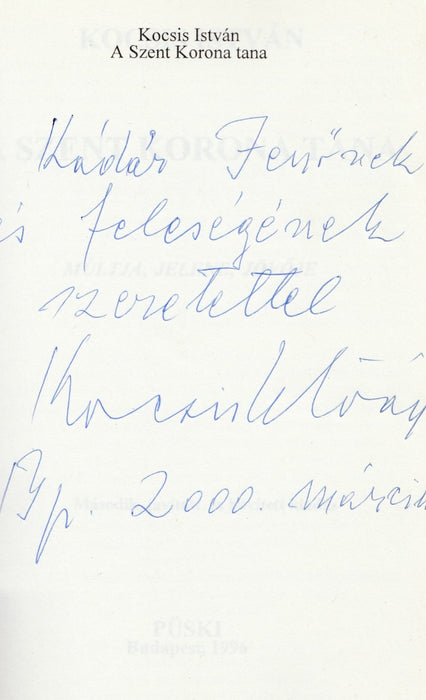 Kocsis István
A Szent Korona tana
Kádár Jenőnek
és feleségének
szeretettel
Kocsis István
Bp. 2000 március
KOCSIS ISTVÁN
A SZENT KORONA TANA
MÚLTJA, JELENE, JÖVŐJE
Második, javított
PÜSKI
Budapest, 1996